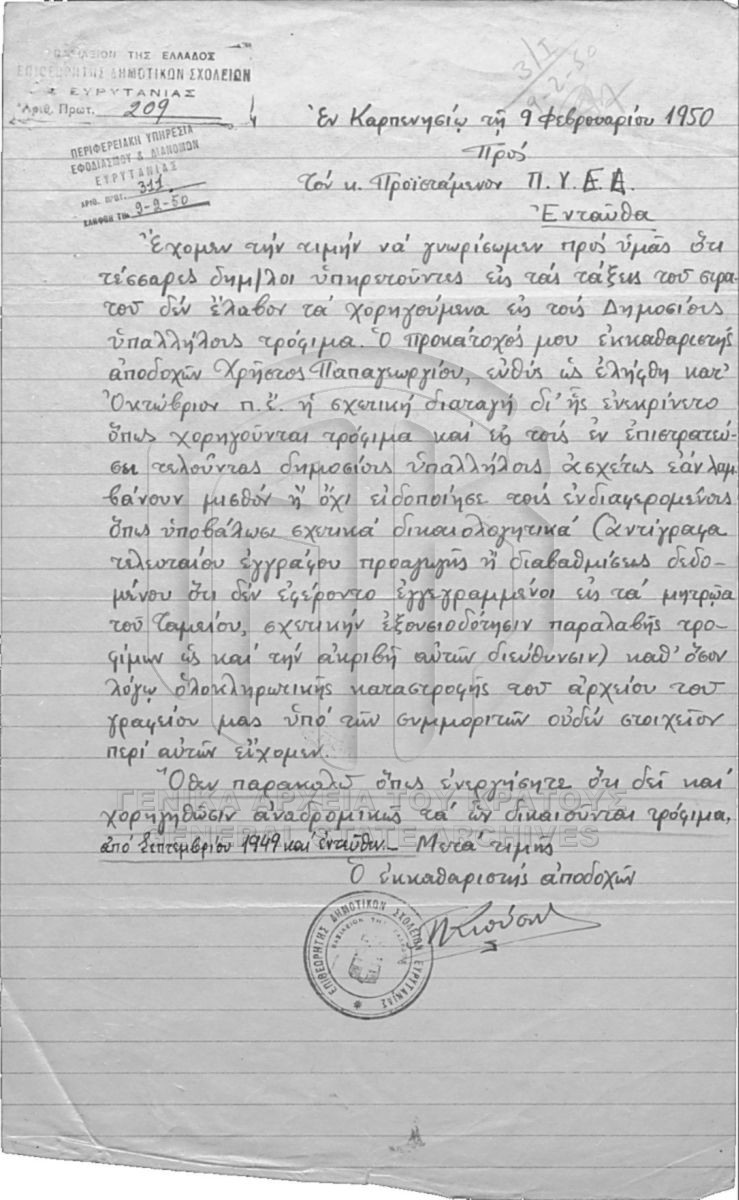 ΒΑΣΙΛΕΙΟΝ ΤΗΣ ΕΛΛΑΔΟΣ
ΕΠΙΘΕΩΡΗΤΗΣ ΔΗΜΟΤΙΚΩΝ ΣΧΟΛΕΙΩΝ
ΕΥΡΥΤΑΝΙΑΣ
Ἀριθ. Πρωτ. 209
3/I
9-2-50
ΠΕΡΙΦΕΡΕΙΑΚΗ ΥΠΗΡΕΣΙΑ
ΕΦΟΔΙΑΣΜΟΥ & ΔΙΑΝΟΜΩΝ
ΕΥΡΥΤΑΝΙΑΣ
ΑΡΙΘ. ΠΡΩΤ. 311
ΕΛΗΦΘΗ ΤΗΝ 9-2-50
Ἐν Καρπενησίῳ τῇ 9 Φεβρουαρίου 1950
Πρός
Τόν κ. Προϊστάμενον Π.Υ.Ε.Δ.
Ἐνταῦθα
Ἔχομεν τήν τιμήν νά γνωρίσωμεν πρός ὑμᾶς ὅτι
τέσσαρες δημ/λοι ὑπηρετοῦντες εἰς τάς τάξεις τοῦ στρα
τοῦ δέν ἔλαβον τά χορηγούμενα εἰς τούς Δημοσίους
ὑπαλλήλους τρόφιμα. Ὁ προκάτοχός μου ἐκκαθαριστής
ἀποδοχῶν Χρῆστος Παπαγεωργίου, εὐθύς ὡς ἐλήφθη κατ'
Ὀκτώβριον π.ἔ. ἡ σχετική διαταγή δι' ἧς ἐνεκρίνετο
ὅπως χορηγοῦνται τρόφιμα καί εἰς τούς ἐν ἐπιστρατεύ-
σει τελοῦντας δημοσίους ὑπαλλήλους ἀσχέτως ἐάν λαμ
βάνουν μισθόν ἤ ὄχι εἰδοποίησε τούς ἐνδιαφερομένους
ὅπως ὑποβάλωσι σχετικά δικαιολογητικά (ἀντίγραφα
τελευταίου ἐγγράφου προαγωγῆς ἤ διαβαθμίσεως δεδο-
μένου ὅτι δέν ἐφέροντο ἐγγεγραμμένοι εἰς τά μητρῷα
τοῦ Ταμείου, σχετικήν ἐξουσιοδότησιν παραλαβῆς τρο-
φίμων ὡς καί τήν ἀκριβῆ αὐτῶν διεύθυνσιν) καθ' ὅσον
λόγῳ ὁλοκληρωτικῆς καταστροφῆς τοῦ ἀρχείου τοῦ
γραφείου μας ὑπό τῶν συμμοριτῶν οὐδέν στοιχεῖον
περί αὐτῶν εἴχομεν.
Ὅθεν παρακαλῶ ὅπως ἐνεργήσητε ὅτι δεῖ καί
χορηγηθῶσιν ἀναδρομικῶς τά ὧν δικαιοῦνται τρόφιμα,
ἀπό Σεπτεμβρίου 1949 καί ἐντεῦθεν.- Μετά τιμῆς
Ὁ ἐκκαθαριστής ἀποδοχῶν
ΕΠΙΘΕΩΡΗΤΗΣ ΔΗΜΟΤΙΚΩΝ ΣΧΟΛΕΙΩΝ ΕΥΡΥΤΑΝΙΑΣ
ΒΑΣΙΛΕΙΟΝ ΤΗΣ ΕΛΛΑΔΟΣ
ΓΕΝΙΚΑ ΑΡΧΕΙΑ ΤΟΥ ΚΡΑΤΟΥΣ
GENERAL STATE ARCHIVES